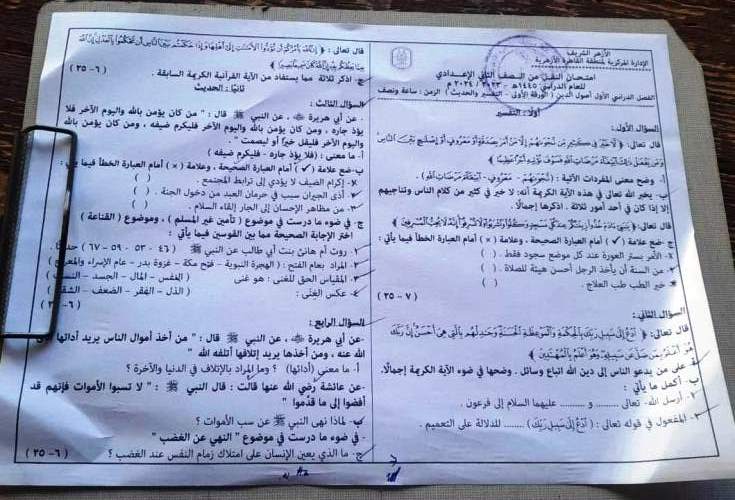 الأزهر الشريف
الإدارة المركزية بمنطقة القاهرة الأزهرية
امتحان النقل من الصف الثاني الإعدادي
للعام الدراسي ١٤٤٥هـ - ٢٠٢٣ / ٢٠٢٤م
الفصل الدراسي الأول أصول الدين ( الورقة الأولى - التفسير والحديث ) الزمن : ساعة ونصف
أولا : التفسير
السؤال الأول:
قال تعالى: ﴿ لَّا خَيْرَ فِي كَثِيرٍ مِّن نَّجْوَىٰهُمْ إِلَّا مَنْ أَمَرَ بِصَدَقَةٍ أَوْ مَعْرُوفٍ أَوْ إِصْلَٰحٍ بَيْنَ النَّاسِ
وَمَن يَفْعَلْ ذَٰلِكَ ابْتِغَاءَ مَرْضَاتِ اللَّهِ فَسَوْفَ نُؤْتِيهِ أَجْرًا عَظِيمًا ﴾
أ- وضح معنى المفردات الآتية : ( نَّجْوَىٰهُمْ - مَعْرُوفٍ - ابْتِغَاءَ مَرْضَاتِ اللَّهِ ) .
ب- يخبر الله تعالى في هذه الآية الكريمة أنه: لا خير في كثير من كلام الناس وتناجيهم
إلا إذا كان في أحد أمور ثلاثة . اذكرها إجمالًا.
قال تعالى: ﴿ يَٰبَنِي ءَادَمَ خُذُوا زِينَتَكُمْ عِندَ كُلِّ مَسْجِدٍ وَكُلُوا وَاشْرَبُوا وَلَا تُسْرِفُوا إِنَّهُ لَا يُحِبُّ الْمُسْرِفِينَ ﴾
ج- ضع علامة ( ✓ ) أمام العبارة الصحيحة ، وعلامة ( × ) أمام العبارة الخطأ فيما يأتي :
١- الأمر بستر العورة عند كل موضع سجود فقط . ( )
٢- من السنة أن يأخذ الرجل أحسن هيئة للصلاة . ( )
٣- خير الطب طب العلاج . ( )
( ٧ - ٢٥ )
السؤال الثاني:
قال تعالى: ﴿ ادْعُ إِلَىٰ سَبِيلِ رَبِّكَ بِالْحِكْمَةِ وَالْمَوْعِظَةِ الْحَسَنَةِ وَجَٰدِلْهُم بِالَّتِي هِيَ أَحْسَنُ إِنَّ رَبَّكَ
هُوَ أَعْلَمُ بِمَن ضَلَّ عَن سَبِيلِهِ وَهُوَ أَعْلَمُ بِالْمُهْتَدِينَ ﴾
أ- على من يدعو الناس إلى دين الله اتباع وسائل . وضحها في ضوء الآية الكريمة إجمالًا.
ب- أكمل ما يأتي :
١- أرسل الله- تعالى ......... و ......... عليهما السلام إلى فرعون .
٢- المفعول في قوله تعالى : ( ادْعُ إِلَىٰ سَبِيلِ رَبِّكَ ) ......... للدلالة على التعميم .
قال تعالى : ﴿ إِنَّ اللَّهَ يَأْمُرُكُمْ أَن تُؤَدُّوا الْأَمَٰنَٰتِ إِلَىٰ أَهْلِهَا وَإِذَا حَكَمْتُم بَيْنَ النَّاسِ أَن تَحْكُمُوا بِالْعَدْلِ إِنَّ اللَّهَ
نِعِمَّا يَعِظُكُم بِهِ إِنَّ اللَّهَ كَانَ سَمِيعًا بَصِيرًا ﴾
ج- اذكر ثلاثة مما يستفاد من الآية القرآنية الكريمة السابقة . ( ٦ - ٢٥ )
ثانيًا : الحديث
السؤال الثالث :
عن أبي هريرة ﷺ ، عن النبي ﷺ قال : " من كان يؤمن بالله واليوم الآخر فلا
يؤذ جاره ، ومن كان يؤمن بالله واليوم الآخر فليكرم ضيفه ، ومن كان يؤمن بالله
واليوم الآخر فليقل خيرًا أو ليصمت "
أ- ما معنى : (فلا يؤذ جاره - فليكرم ضيفه )
ب- ضع علامة ( ✓ ) أمام العبارة الصحيحة ، وعلامة ( × ) أمام العبارة الخطأ فيما يأتي :
١- إكرام الضيف لا يؤدي إلى ترابط المجتمع . ( )
٢- أذى الجيران سبب في حرمان العبد من دخول الجنة . ( )
٣- من مظاهر الإحسان إلى الجار إلقاء السلام . ( )
ج- في ضوء ما درست في موضوع ( تأمين غير المسلم ) ، وموضوع ( القناعة )
اختر الإجابة الصحيحة مما بين القوسين فيما يأتي :
١- روت أم هانئ بنت أبي طالب عن النبي ﷺ ( ٤٦ - ٥٣ - ٥٩ - ٦٧ ) حديثًا .
٢- المراد بعام الفتح : ( الهجرة النبوية - فتح مكة - غزوة بدر - عام الإسراء والمعراج )
٣- المقياس الحق للغنى : هو غنى ( النفس - المال - الجسد - النسب )
٤- عكس الغِنَى : ( الذل - الفقر - الضعف -
السؤال الرابع :
-عن أبي هريرة ، عن النبي ﷺ قال : " من أخذ أموال الناس يريد أداءها
الله عنه ، ومن أخذها يريد إتلافها أتلفه الله "
أ- ما معنى (أداءها) ؟ وما المراد بالإتلاف في الدنيا والآخرة ؟
-عن عائشة رضي الله عنها قالت : قال النبي ﷺ : " لا تسبوا الأموات فإنهم قد
أفضوا إلى ما قدموا "
ب- لماذا نهى النبي ﷺ عن سب الأموات ؟
- في ضوء ما درست في موضوع " النهي عن الغضب "
ج- ما الذي يعين الإنسان على امتلاك زمام النفس عند الغضب ؟ ( ٦ - ٢٥ )